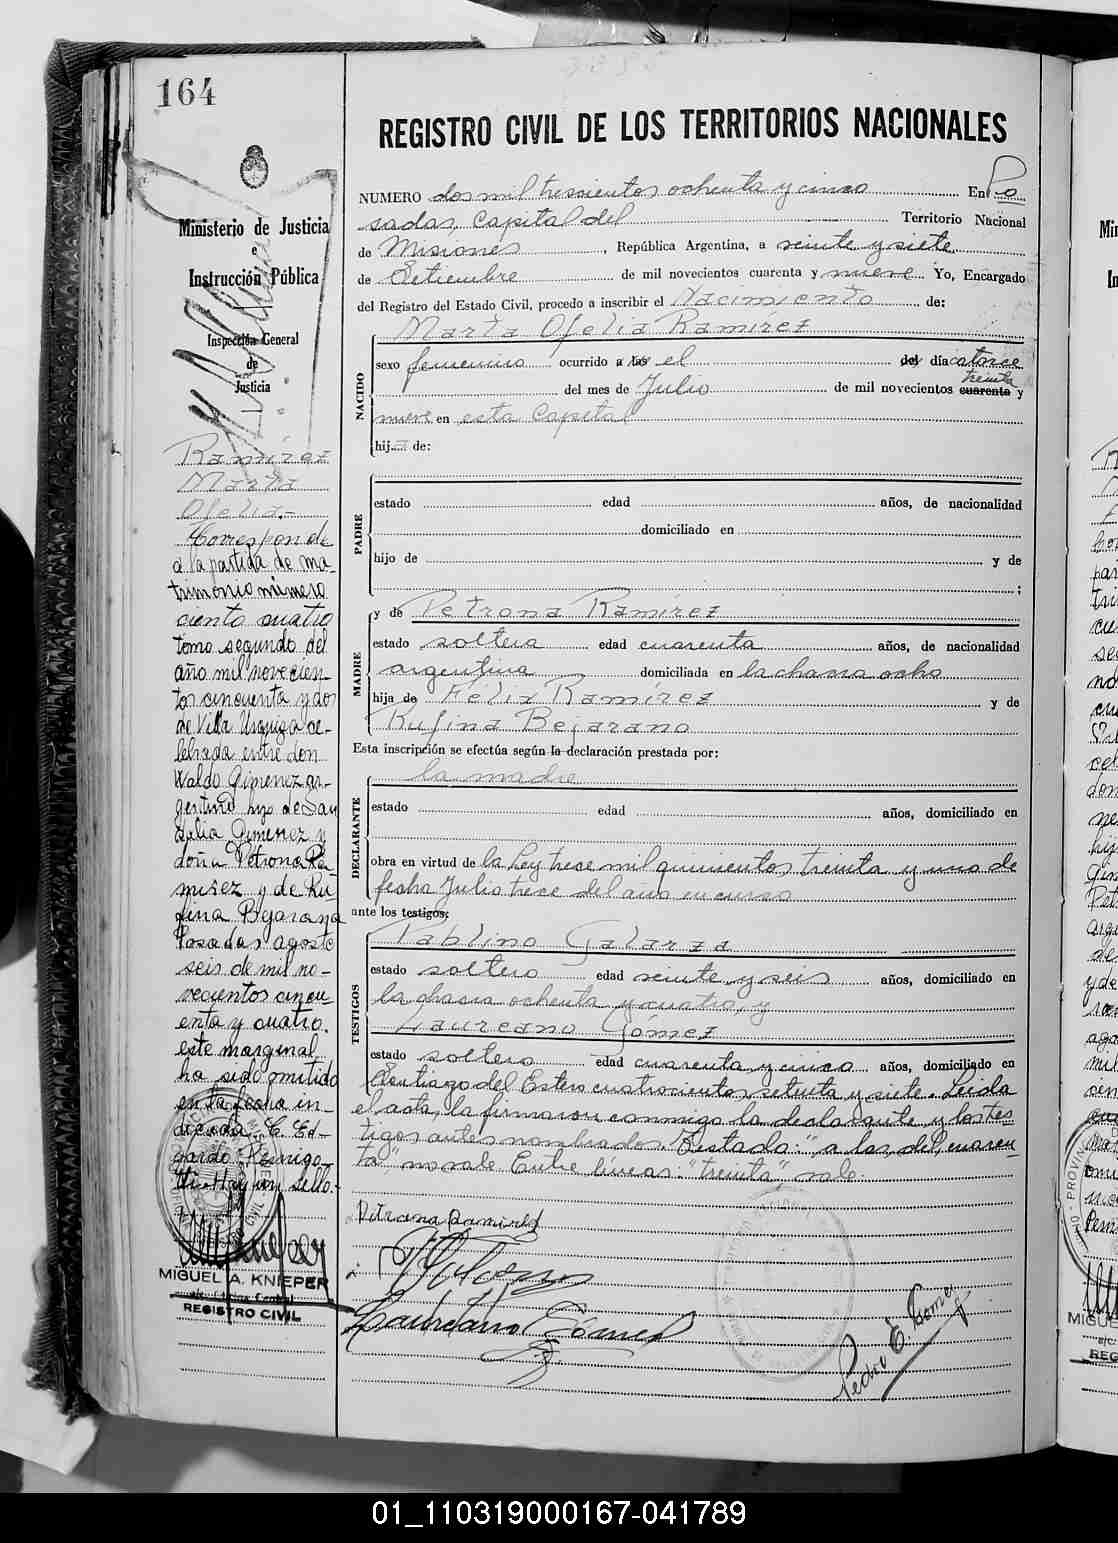 164
REGISTRO CIVIL DE LOS TERRITORIOS NACIONALES
Ministerio de Justicia
e
Instrucción Pública
Inspección General
de
Justicia
Ramírez
María
Ofelia.-
Corresponde
a la partida de ma-
trimonio número
ciento cuatro
tomo segundo del
año mil novecien-
tos cincuenta y dos
de Villa Urquiza ce-
lebrada entre don
Waldo Gimenez ar-
gentino hijo de San
Julia Gimenez y
doña Petrona Ra-
mirez y de Ru-
fina Bejarano
Posadas agosto
seis de mil no-
vecientos cincu-
enta y cuatro.
este marginal
ha sido omitido
en la fecha in-
dicada. C. Ed-
gardo
Hay un sello.-
MIGUEL A. KNIEPER
REGISTRO CIVIL
NUMERO dos mil trescientos ochenta y cinco En Po
sadas, Capital del Territorio Nacional
de Misiones, República Argentina, a veinte y siete
de Setiembre de mil novecientos cuarenta y nueve Yo, Encargado
del Registro del Estado Civil, procedo a inscribir el Nacimiento de:
NACIDO
María Ofelia Ramírez
sexo femenino ocurrido a las el del día catorce
treinta
del mes de Julio de mil novecientos cuarenta y
nueve en esta Capital
hija de:
PADRE
estado edad años, de nacionalidad
domiciliado en
hijo de y de
;
MADRE
y de Petrona Ramírez
estado soltera edad cuarenta años, de nacionalidad
argentina domiciliada en la chacra ocho
hija de Félix Ramírez y de
Rufina Bejarano
Esta inscripción se efectúa según la declaración prestada por:
DECLARANTE
la madre
estado edad años, domiciliado en
obra en virtud de la Ley trece mil quinientos treinta y uno de
fecha Julio trece del año en curso
ante los testigos:
TESTIGOS
Pablino Galarza
estado soltero edad veinte y seis años, domiciliado en
la chacra ochenta y cuatro, y
Laureano Gómez
estado soltero edad cuarenta y cinco años, domiciliado en
Santiago del Estero cuatrocientos setenta y siete. Leída
el acta, la firmaron conmigo la declarante y los tes
tigos antes nombrados. Testado: "a las, del, cuaren
ta" no vale Entre líneas: "treinta" vale
Petrona Ramirez
Laureano Gómez
Pedro E. Gomez
01_110319000167-041789